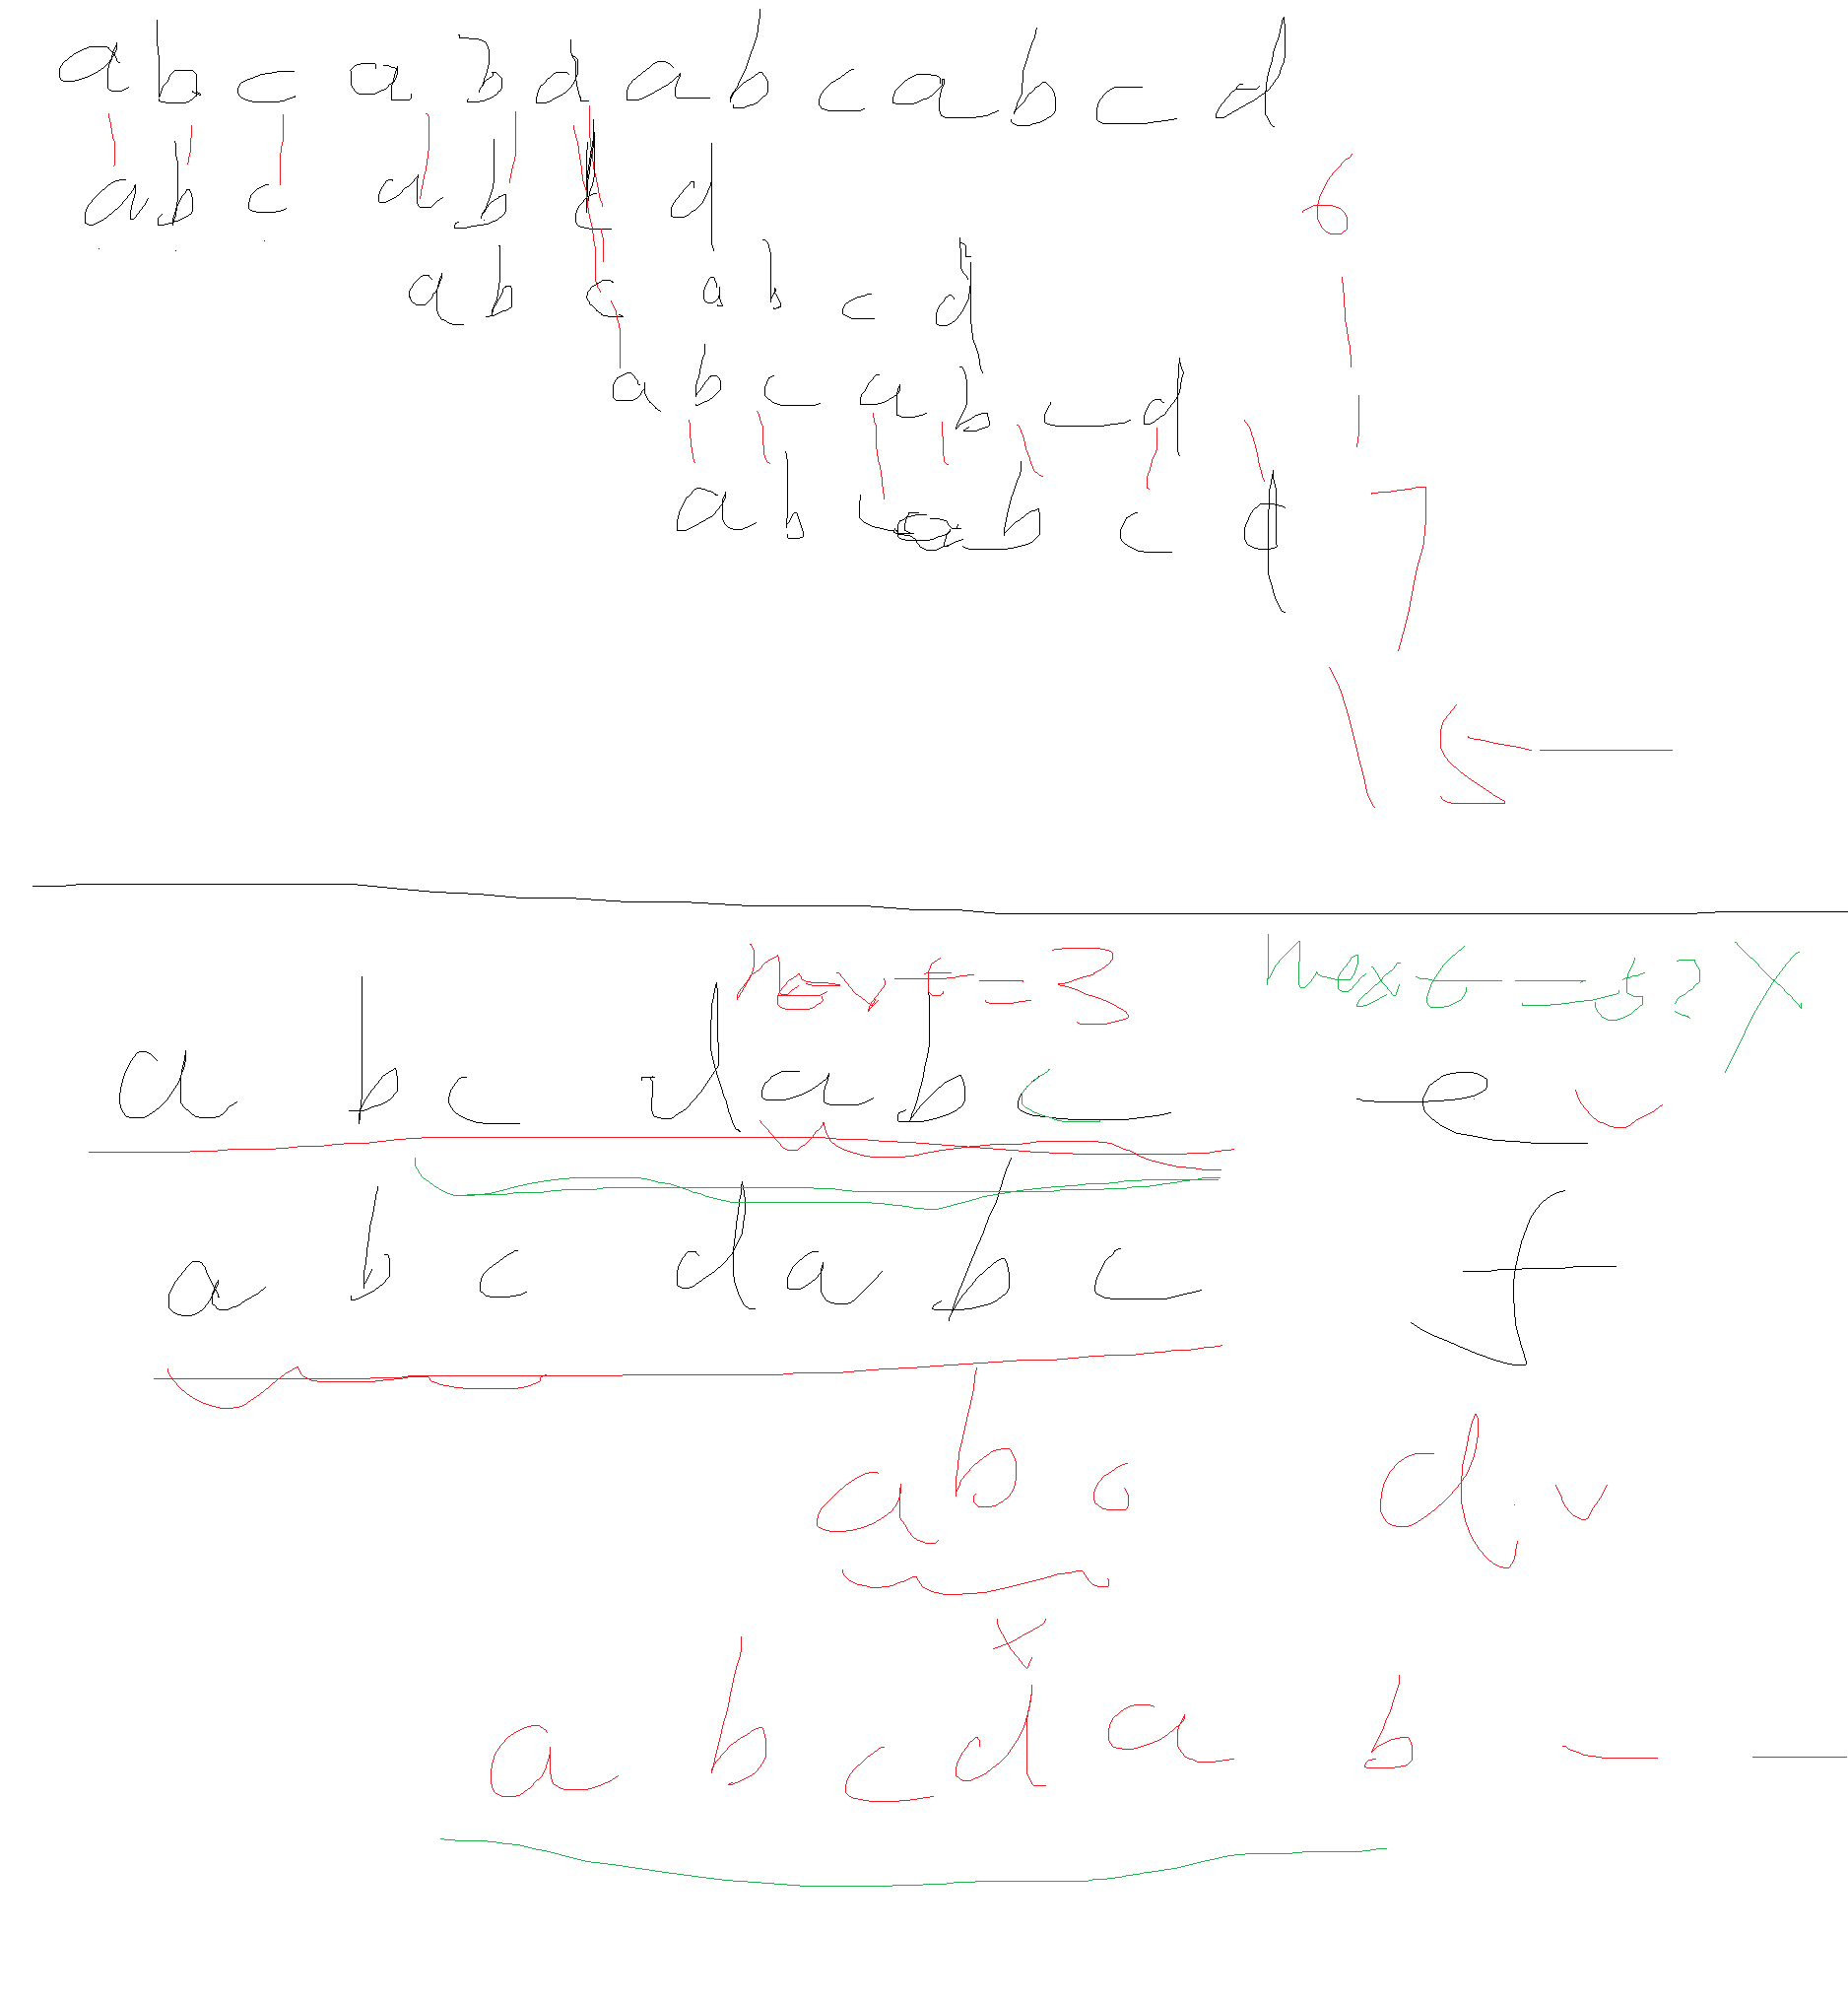 a b c a b d a b c a b c d
a b c a b c d
6
a b c a b c d
1
a b c a b c d
1
a b c a b c d
7
15
next = 3 next = 5? X
a b c d a b c e
a b c d a b c f
a b c d
x
a b c d a b